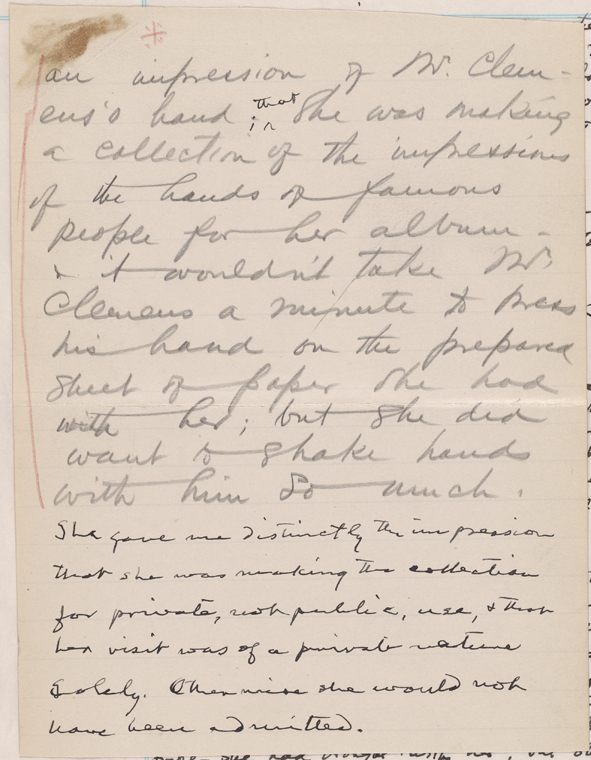 an impression of Mr. Clem-
ens's hand; that
in She was making
a collection of the impressions
of the hands of famous
people for her album -
& it wouldn't take Mr.
Clemens a minute to press
his hand on the prepared
sheet of paper she had
with her; but she did
want to shake hands
with him so much.
She gave me distinctly the impression
that she was making the collection
for private, not public, use, & that
her visit was of a private nature
solely. Otherwise she would not
have been admitted.